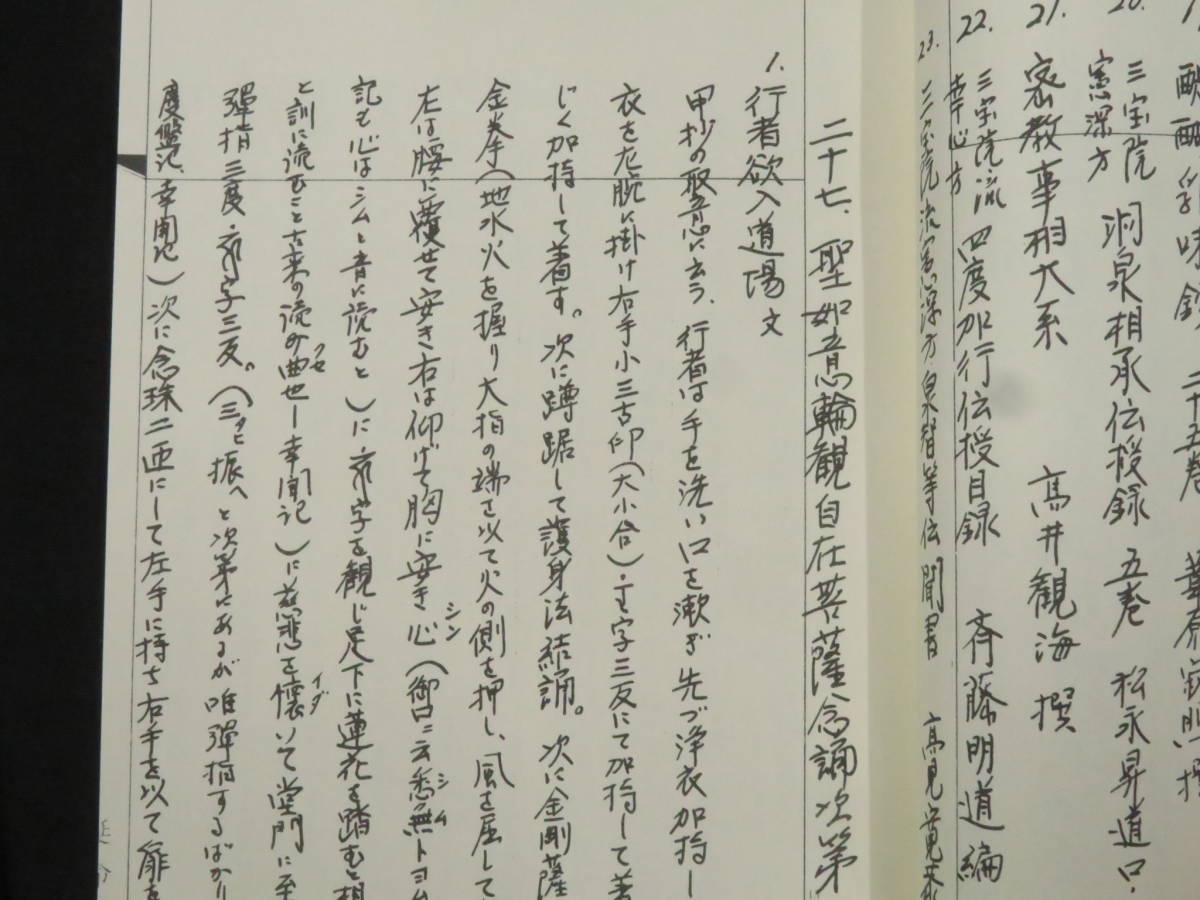 醍醐乳味鈔 二十五巻
20. 三宝院 憲深方 洞泉相承伝授録 五巻 松永昇道口
21. 密教事相大系 高井観海 撰
22. 三宝院流 幸心方 四度加行伝授目録 斉藤明道 編
23. 三宝院流憲深方泉智等伝聞書 高見
二十七、聖如意輪観自在菩薩念誦次第
1. 行者欲入道場文
甲抄の取意に云う、行者は手を洗い口を漱ぎ先づ浄衣加持し
衣を左腕に掛け右手小三古印(大小合)・字三反にて加持して着
じく加持して着す。次に蹲踞して護身法結誦。次に金剛薩
金拳(地水火を握り大指の端を以て火の側を押し、風を屈して
左は腰に覆せて安き右は仰げて胸に安き心シン(御口ニ云悉無シムトヨム
記も心はシムと音に読むと)に・字を観じ足下に蓮花を踏むと想
と訓に流むこと古来の読の曲クセ也ー幸聞記)に慈悲を懐イダいて堂門に至
弾指三度・字三反。(三タヒ振ヘと次第にあるが唯弾指するばかり
度盤記、幸聞記)次に念珠二匝にして左手に持ち右手を以て扉を